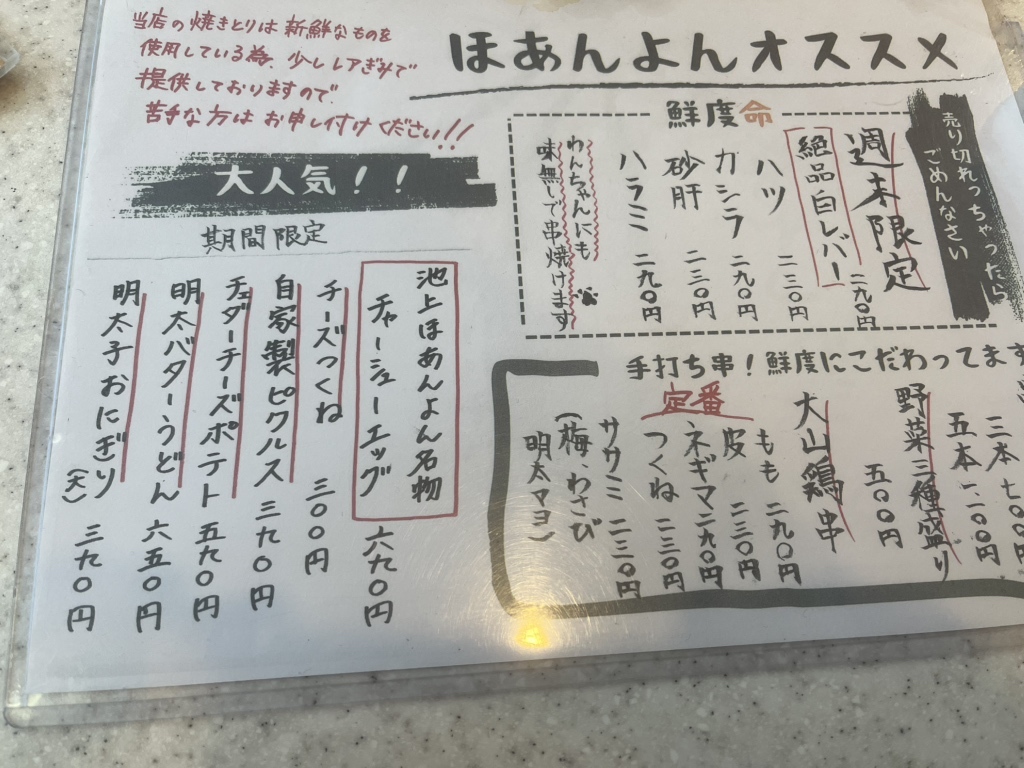 当店の焼きとりは新鮮なものを
使用している為、少しレアぎみで
提供しておりますので
苦手な方はお申し付けください!!
ほあんよんオススメ
売り切れっちゃったら
ごめんなさい
鮮度命
週末限定
絶品白レバー 二九〇円
ハツ 二三〇円
ガシラ 二九〇円
砂肝 二三〇円
ハラミ 二九〇円
わんちゃんにも
味無しで串焼けます
手打ち串!鮮度にこだわってます
三本 七〇〇円
五本 一、一〇〇円
野菜三種盛り
五〇〇円
大山鶏串
定番
もも 二九〇円
皮 二三〇円
ネギマ 二九〇円
つくね 二三〇円
ササミ 二三〇円
(梅、わさび
明太マヨ)
大人気!!
期間限定
池上ほあんよん名物
チャーシューエッグ 六九〇円
チーズつくね 三〇〇円
自家製ピクルス 三九〇円
チェダーチーズポテト 五九〇円
明太バターうどん 六五〇円
明太子おにぎり(大) 三九〇円